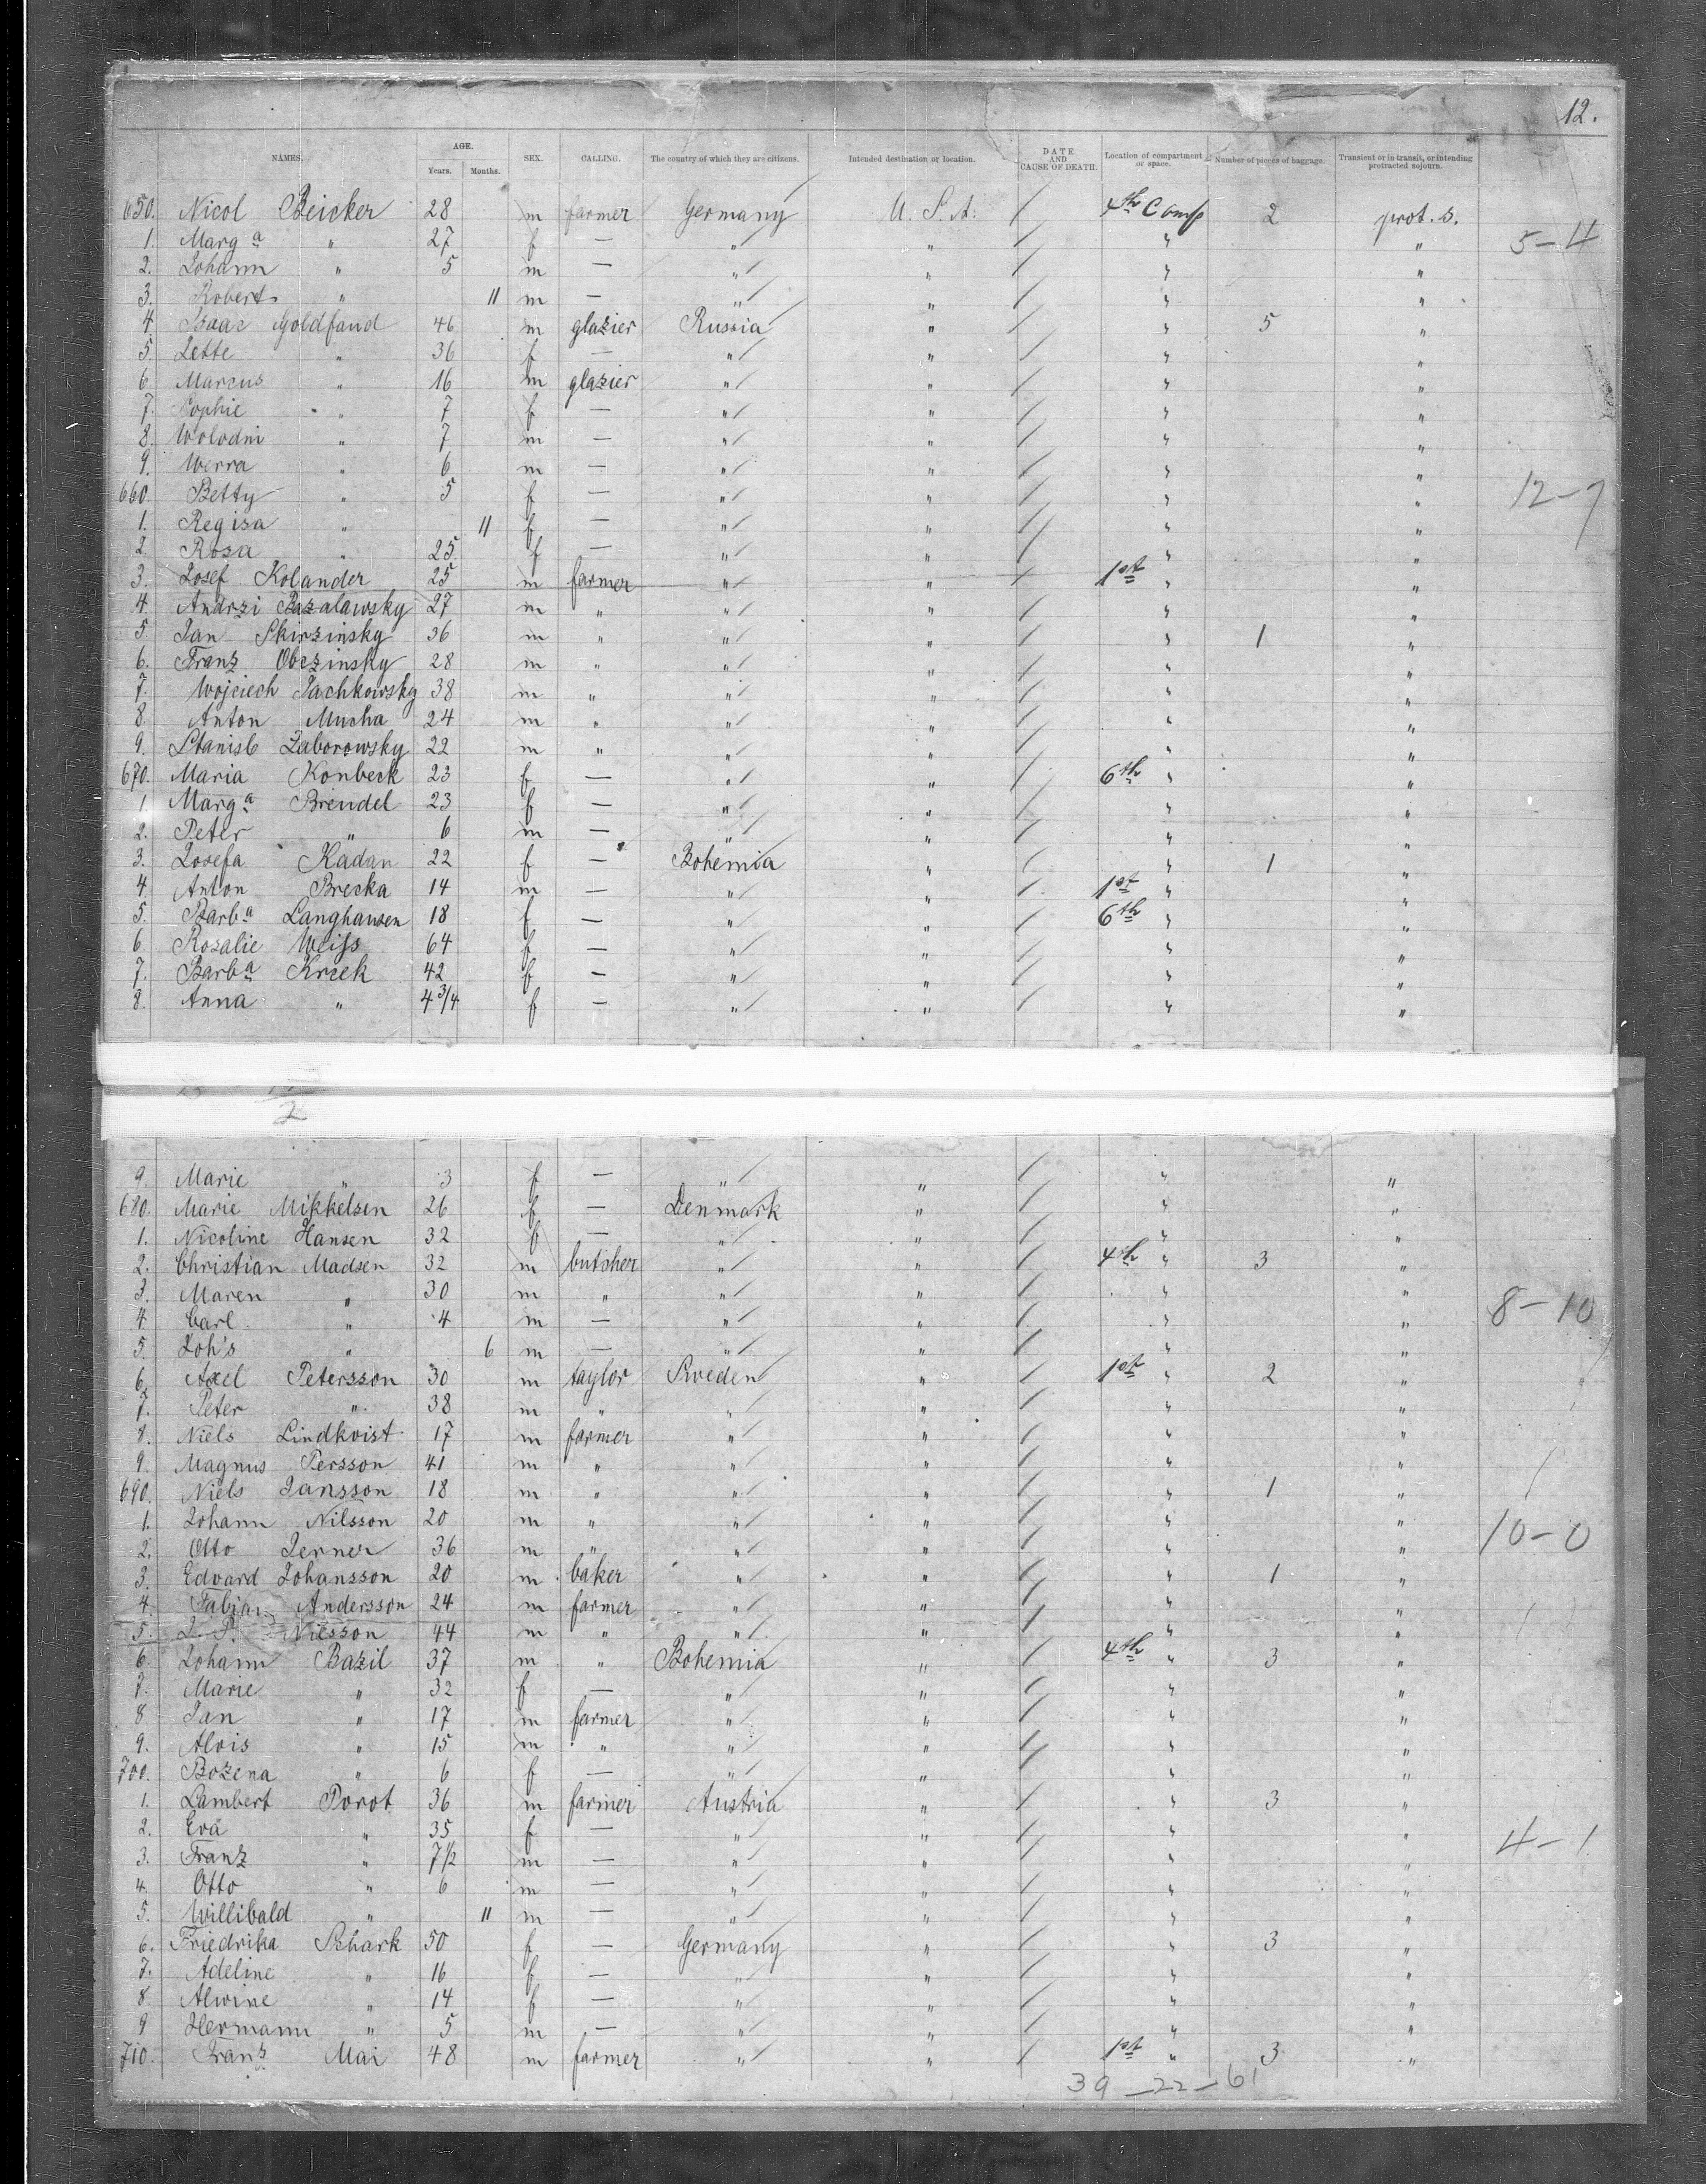 12.
NAMES. AGE. Years. Months. SEX. CALLING. The country of which they are citizens. Intended destination or location. DATE AND CAUSE OF DEATH. Location of compartment or space. Number of pieces of baggage. Transient or in transit, or intending protracted sojourn.
650. Nicol Beicker 28 m farmer Germany / U. S. A. / 4th Comp 2 prot. s.
1. Marg a " 27 f — " / " / " " 5-4
2. Johann " 5 m — " / " / " "
3. Robert " 11 m — " / " / " "
4. Isaac Goldfand 46 m glazier Russia / " / " 5 "
5. Zette " 36 f — " / " / " "
6. Marcus " 16 m glazier " / " / " "
7. Sophie " 7 f — " / " / " "
8. Wolodni " 7 m — " / " / " "
9. Werra " 6 m — " / " / " "
660. Betty " 5 f — " / " / " " 12-7
1. Regisa " 11 f — " / " / " "
2. Rosa " 25 f — " / " / " "
3. Josef Kolander 25 m farmer " / " / 1st " "
4. Andrzi 27 m " " / " / " "
5. Jan Skirzinsky 36 m " " / " / " 1 "
6. Franz Obezinsky 28 m " " / " / " "
7. Wojciech Jachkowsky 38 m " " / " / " "
8. Anton Mucha 24 m " " / " / " "
9. Stanisl Zaborowsky 22 m " " / " / " "
670. Maria Konbeck 23 f — " / " / 6th " "
1. Marg a Brendel 23 f — " / " / " "
2. Peter " 6 m — " / " / " "
3. Josefa Kadan 22 f — Bohemia " / " 1 "
4. Anton Brecka 14 m — " / " / 1st " "
5. Barb a Langhansen 18 f — " / " / 6th " "
6. Rosalie Weiss 64 f — " / " / " "
7. Barb a Krcek 42 f — " / " / " "
8. Anna " 4 3/4 f — " / " / " "
2
9. Marie " 3 f — " / " / " "
680. Marie Mikkelsen 26 f — Denmark " / " "
1. Nicoline Hansen 32 f — " / " / " "
2. Christian Madsen 32 m butcher " / " / 4th " 3 "
3. Maren " 30 m " " / " / " "
4. Carl " 4 m — " / " / " " 8-10
5. Joh's " 6 m — " / " / " "
6. Axel Petersson 30 m taylor Sweden / " / 1st " 2 "
7. Peter " 38 m " " / " / " "
8. Niels Lindkvist 17 m farmer " / " / " "
9. Magnus Persson 41 m " " / " / " "
690. Niels Jansson 18 m " " / " / " 1 "
1. Johann Nilsson 20 m " " / " / " " 10-0
2. Otto Jerner 36 m " " / " / " "
3. Edvard Johansson 20 m baker " / " / " 1 "
4. Fabian Andersson 24 m farmer " / " / " "
5. J. P. Nilsson 44 m " " / " / " "
6. Johann Bazil 37 m " Bohemia / " / 4th " 3 "
7. Marie " 32 f — " / " / " "
8 Jan " 17 m farmer " / " / " "
9. Alois " 15 m " " / " / " "
700. Bozena " 6 f — " / " / " "
1. Lambert Porot 36 m farmer Austria / " / " 3 "
2. Eva " 35 f — " / " / " " 4-1
3. Franz " 7 1/2 m — " / " / " "
4. Otto " 6 m — " / " / " "
5. Willibald " 11 m — " / " / " "
6. Friedrika Schark 50 f — Germany / " / " 3 "
7. Adeline " 16 f — " / " / " "
8 Alwine " 14 f — " / " / " "
9 Hermann " 5 m — " / " / " "
710. Franz Mai 48 m farmer " / " / 1st " 3 "
39 - 22 - 61